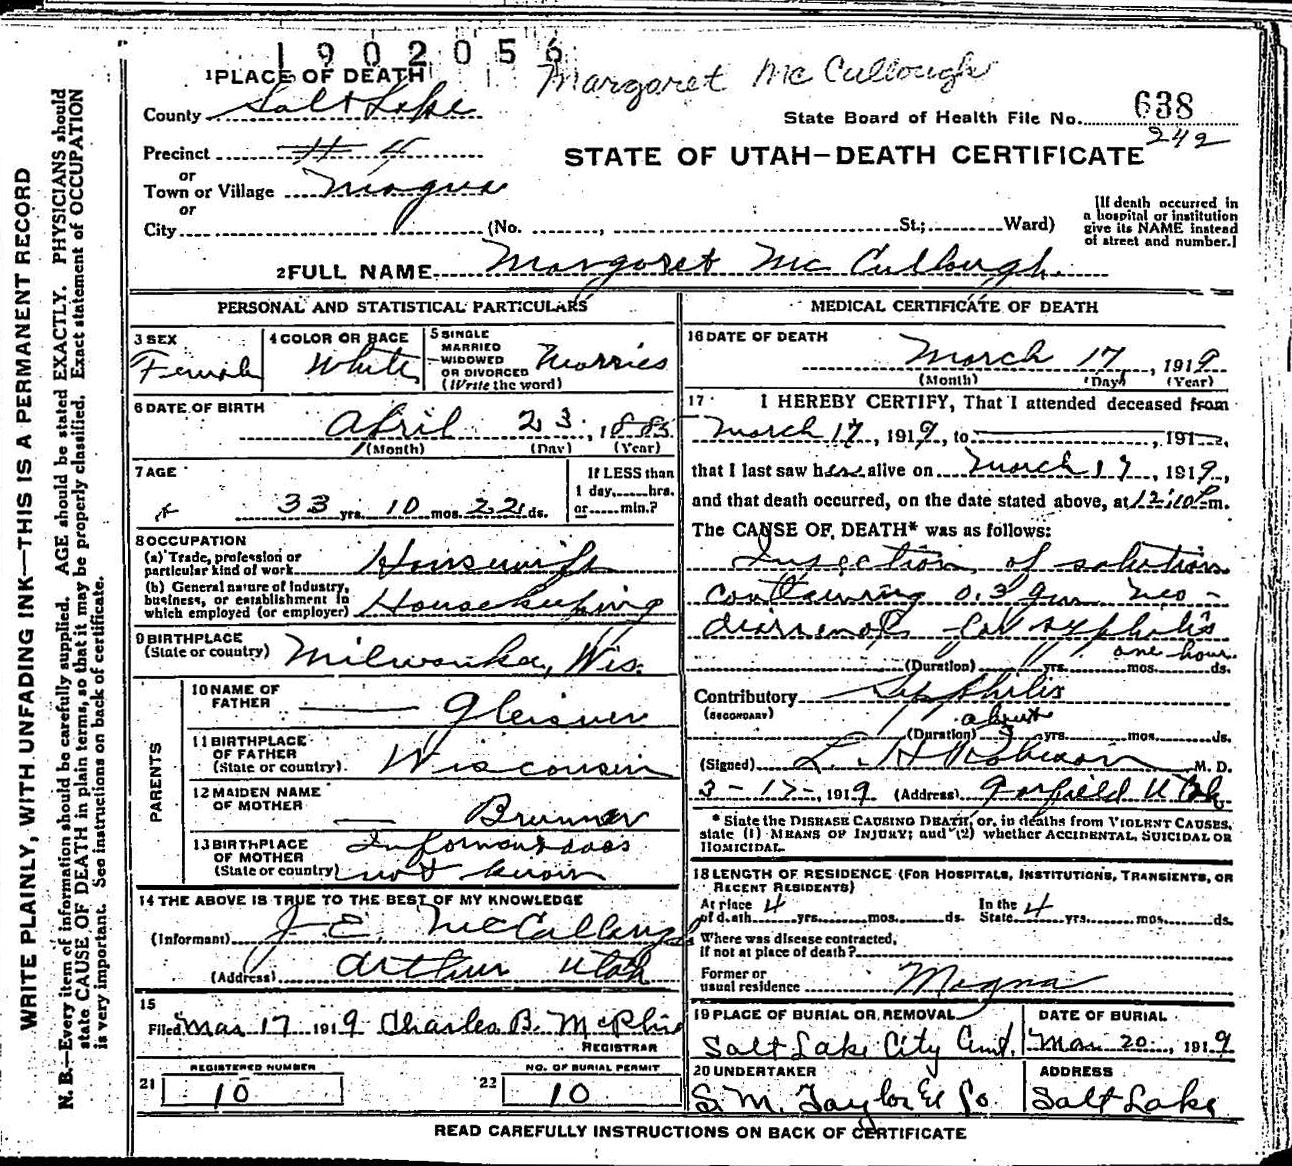 1902056
Margaret McCullough
1 PLACE OF DEATH
County Salt Lake
State Board of Health File No. 638
242
Precinct # 4
STATE OF UTAH—DEATH CERTIFICATE
or
Town or Village Magna
or
City (No. , St.; Ward)
[If death occurred in
a hospital or institution
give its NAME instead
of street and number.]
2 FULL NAME Margaret McCullough
PERSONAL AND STATISTICAL PARTICULARS
3 SEX
Female
4 COLOR OR RACE
White
5 SINGLE
MARRIED
WIDOWED
OR DIVORCED
(Write the word)
Married
6 DATE OF BIRTH
April 23, 1885
(Month) (Day) (Year)
7 AGE
33 yrs. 10 mos. 22 ds.
If LESS than
1 day, hrs.
or min.?
8 OCCUPATION
(a) Trade, profession or
particular kind of work Housewife
(b) General nature of industry,
business, or establishment in
which employed (or employer) Housekeeping
9 BIRTHPLACE
(State or country) Milwaukee, Wis.
PARENTS
10 NAME OF
FATHER Gleisner
11 BIRTHPLACE
OF FATHER
(State or country) Wisconsin
12 MAIDEN NAME
OF MOTHER Brunner
13 BIRTHPLACE
OF MOTHER
(State or country)
Informant does
not know
14 THE ABOVE IS TRUE TO THE BEST OF MY KNOWLEDGE
(Informant) J. E. McCullough
(Address) Arthur Utah
15
Filed Mar 17 1919 Charles B. McPhie
REGISTRAR
21 REGISTERED NUMBER
10
22 NO. OF BURIAL PERMIT
10
MEDICAL CERTIFICATE OF DEATH
16 DATE OF DEATH
March 17, 1919
(Month) (Day) (Year)
17 I HEREBY CERTIFY, That I attended deceased from
March 17, 1919, to , 191 ,
that I last saw her alive on March 17, 1919,
and that death occurred, on the date stated above, at 12:10 P m.
The CAUSE OF DEATH* was as follows:
Injection of solution
containing 0.3 gm neo-
diarsenol for syphilis
one hour
(Duration) yrs. mos. ds.
Contributory Syphilis
(SECONDARY)
about
(Duration) yrs. mos. ds.
(Signed) L. H. Robinson M. D.
3-17-, 1919 (Address) Garfield Utah
* State the DISEASE CAUSING DEATH, or, in deaths from VIOLENT CAUSES,
state (1) MEANS OF INJURY; and (2) whether ACCIDENTAL, SUICIDAL OR
HOMICIDAL.
18 LENGTH OF RESIDENCE (FOR HOSPITALS, INSTITUTIONS, TRANSIENTS, OR
RECENT RESIDENTS)
At place of death 4 yrs. mos. ds. In the State 4 yrs. mos. ds.
Where was disease contracted,
if not at place of death?
Former or
usual residence Magna
19 PLACE OF BURIAL OR REMOVAL
Salt Lake City Cmt.
DATE OF BURIAL
Mar 20, 1919
20 UNDERTAKER
S. M. Taylor & Co.
ADDRESS
Salt Lake
READ CAREFULLY INSTRUCTIONS ON BACK OF CERTIFICATE
WRITE PLAINLY, WITH UNFADING INK—THIS IS A PERMANENT RECORD
N. B.—Every item of information should be carefully supplied. AGE should be stated EXACTLY. PHYSICIANS should
state CAUSE OF DEATH in plain terms, so that it may be properly classified. Exact statement of OCCUPATION
is very important. See instructions on back of certificate.